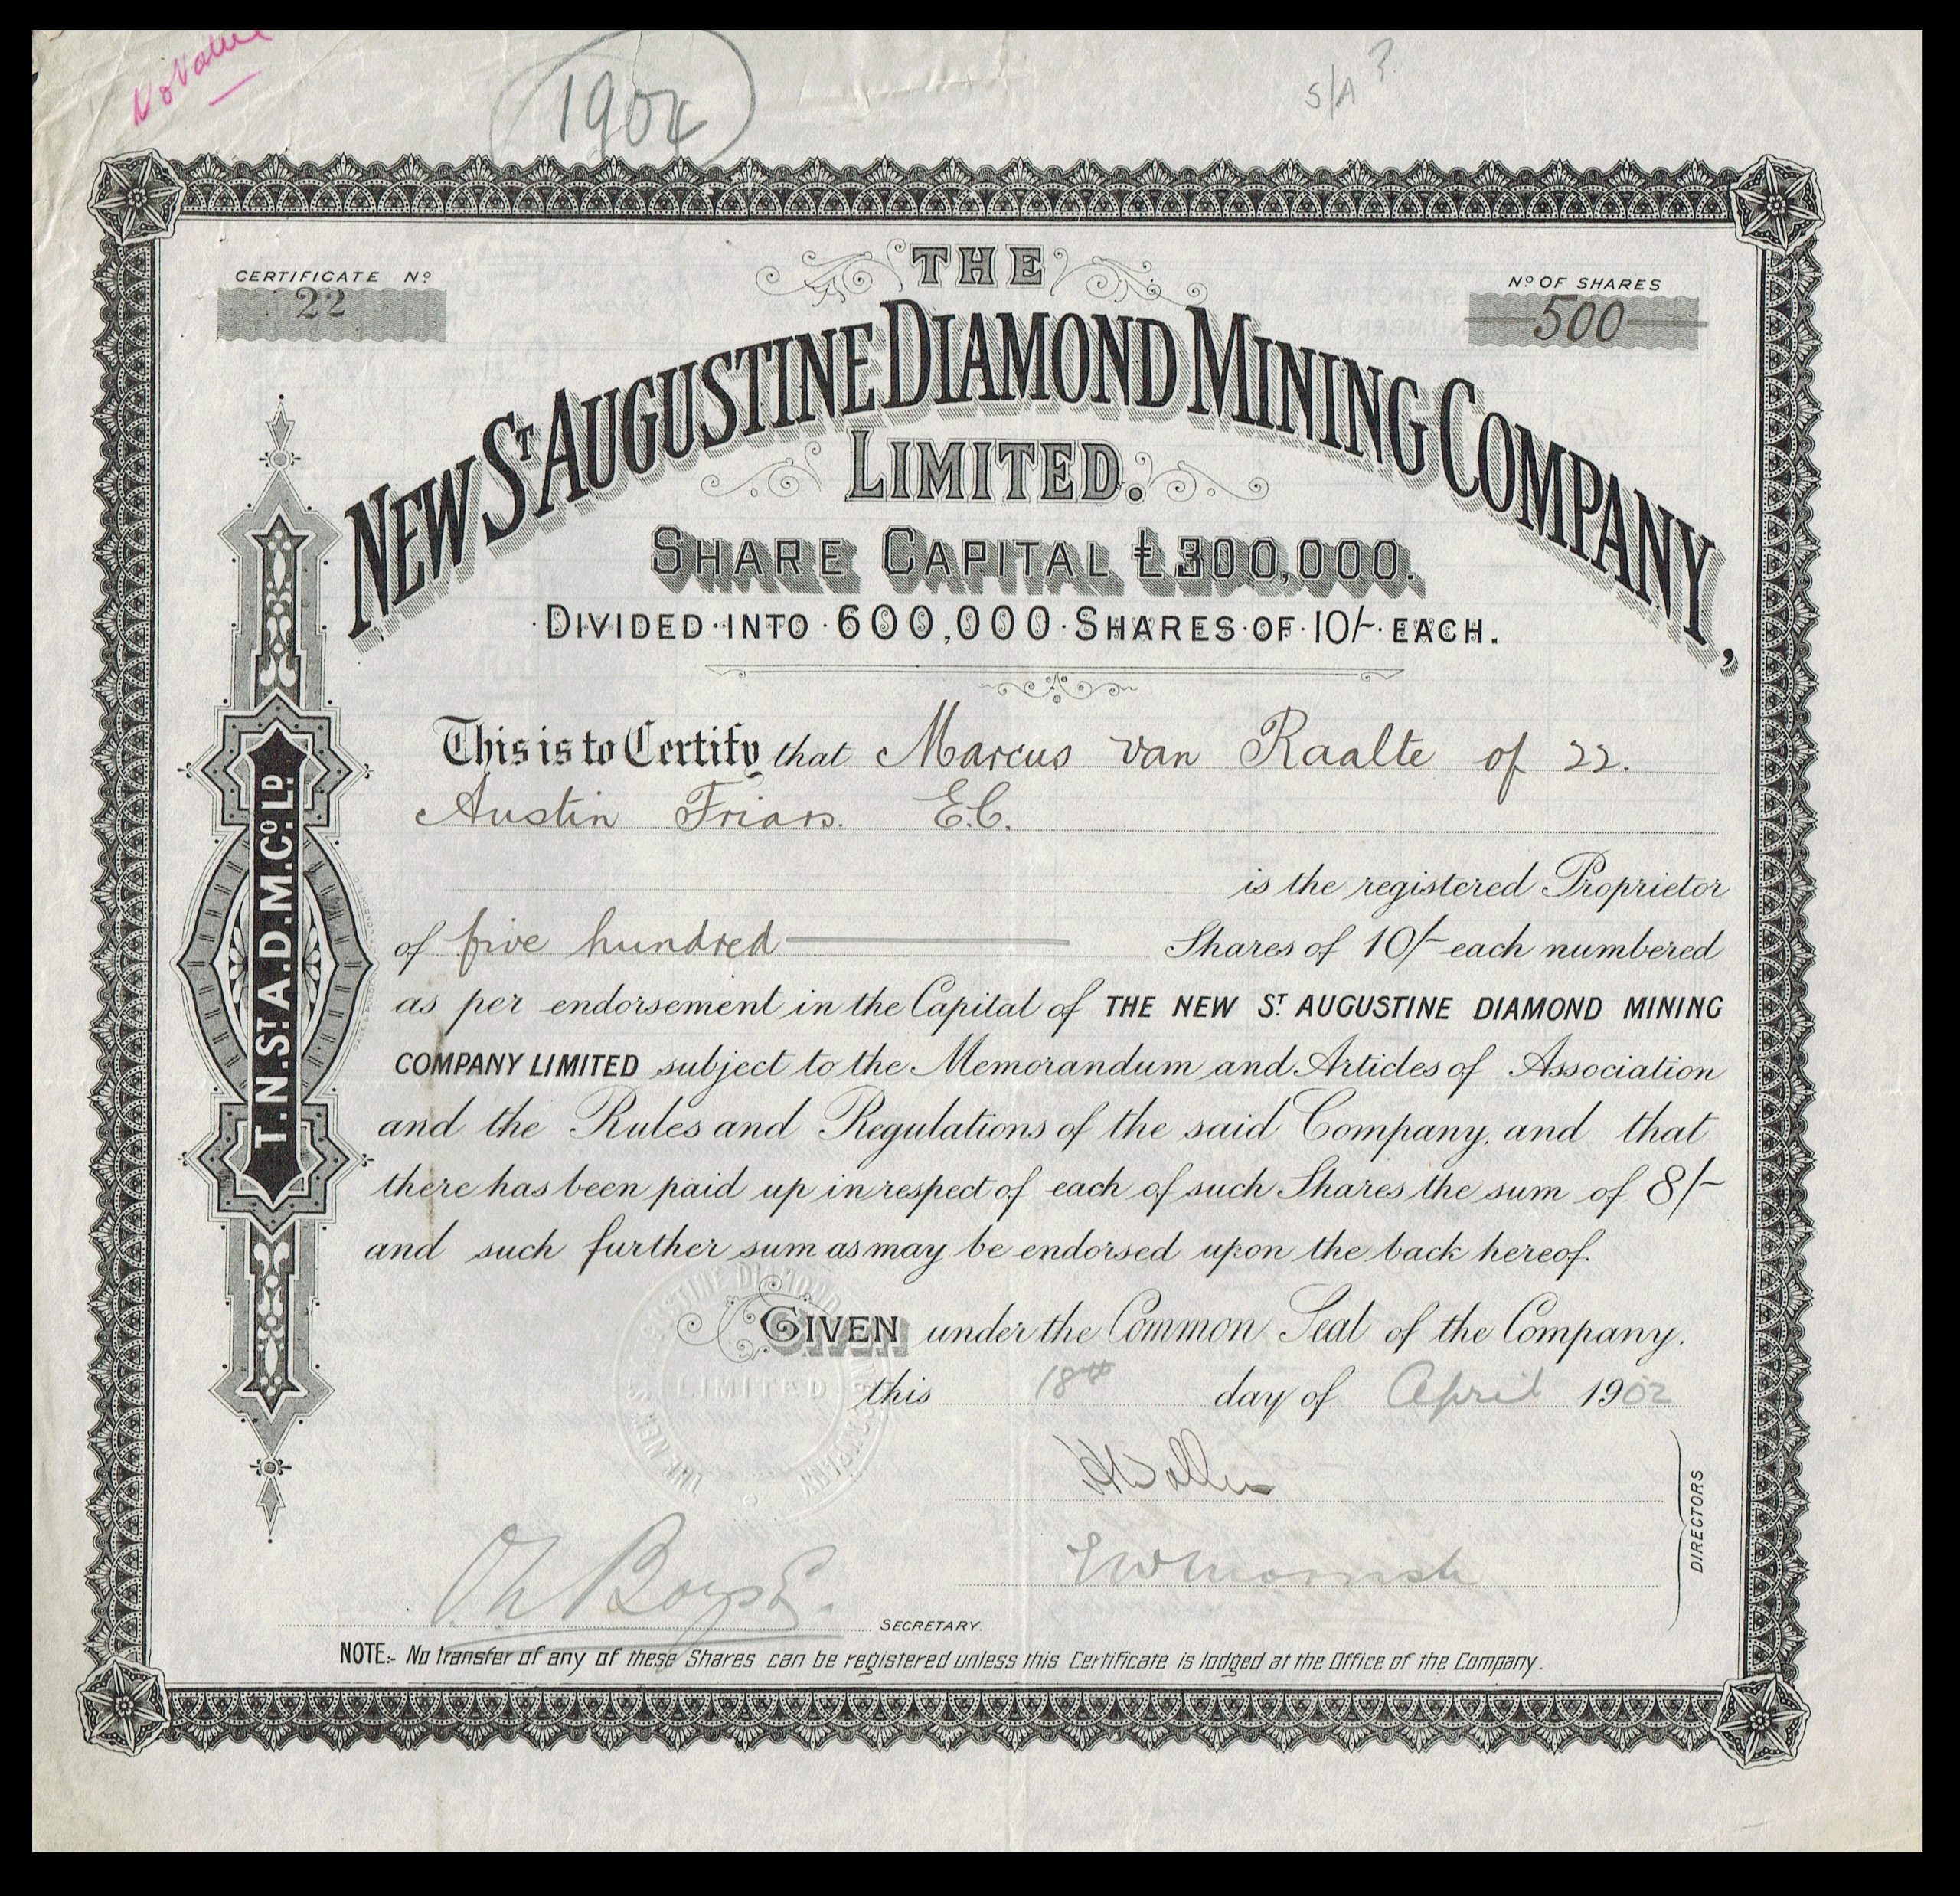 No Value
1902
S/A?
CERTIFICATE Nº
22
Nº OF SHARES
500
THE
NEW ST AUGUSTINE DIAMOND MINING COMPANY,
LIMITED.
SHARE CAPITAL £300,000.
DIVIDED · INTO · 600,000 · SHARES · OF · 10/- · EACH.
T.N.ST.A.D.M.Cº.LD.
This is to Certify that Marcus van Raalte of 22.
Austin Friars. E.C.
is the registered Proprietor
of five hundred Shares of 10/- each numbered
as per endorsement in the Capital of THE NEW ST. AUGUSTINE DIAMOND MINING
COMPANY LIMITED subject to the Memorandum and Articles of Association
and the Rules and Regulations of the said Company, and that
there has been paid up in respect of each of such Shares the sum of 8/-
and such further sum as may be endorsed upon the back hereof.
GIVEN under the Common Seal of the Company.
this 18th day of April 1902
THE NEW ST. AUGUSTINE DIAMOND MINING COMPANY
LIMITED
DIRECTORS
SECRETARY.
NOTE:- No transfer of any of these Shares can be registered unless this Certificate is lodged at the Office of the Company.